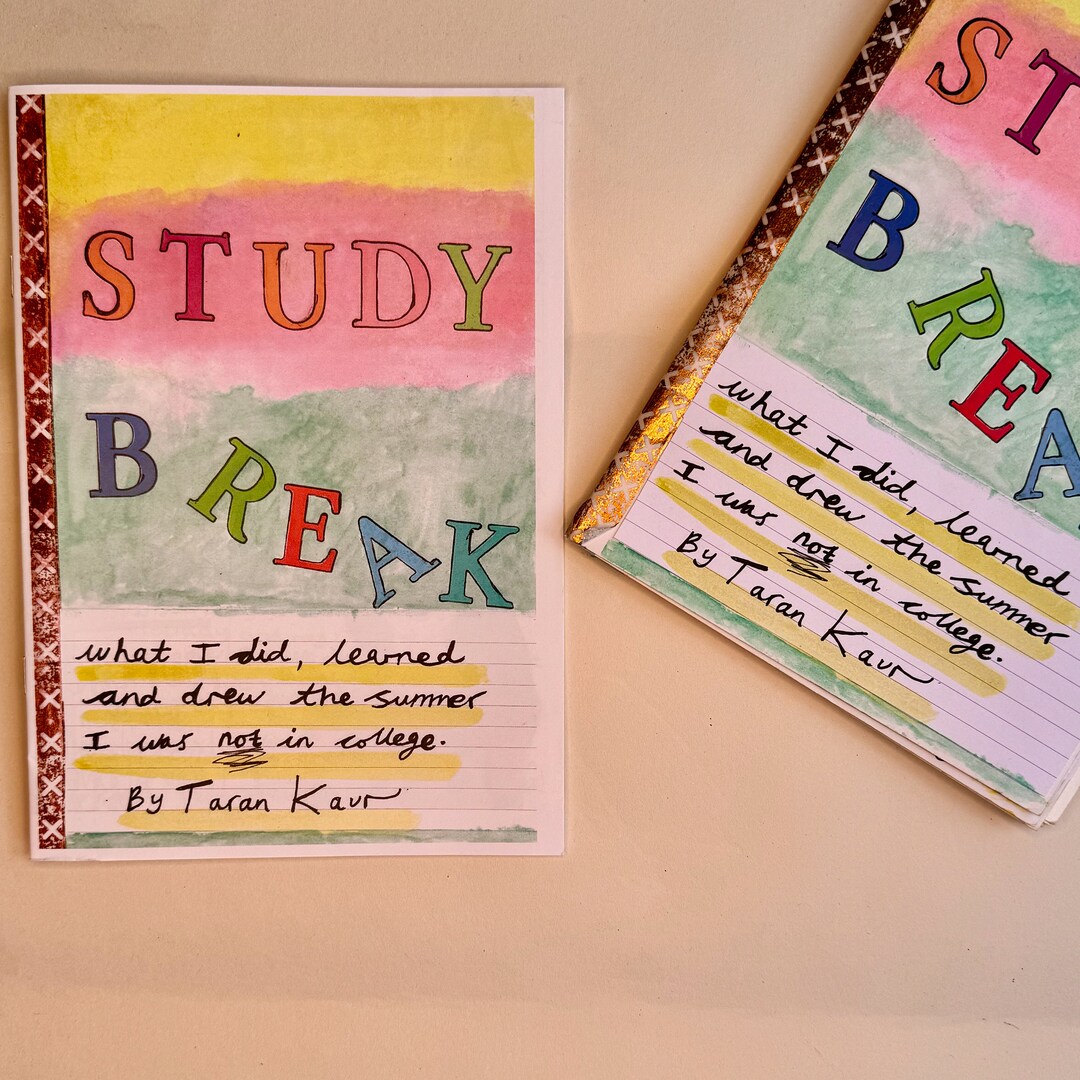 STUDY
BREAK
what I did, learned
and drew the summer
I was not in college.
By Taran Kaur
ST
BREA
what I did, learned
and drew the summer
I was not in college.
By Taran Kaur